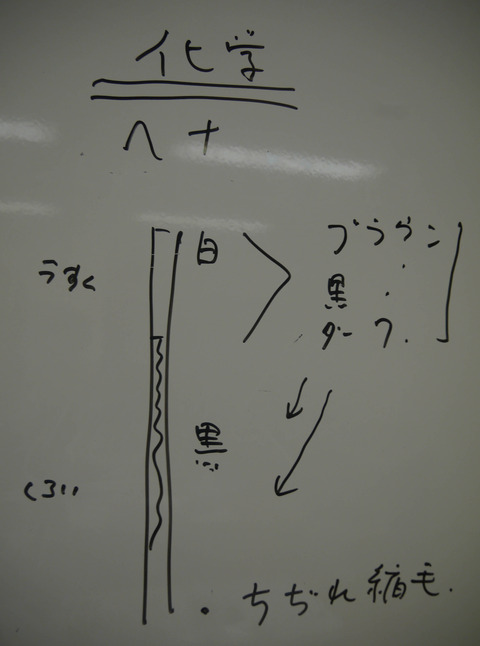 化学
ヘナ
白
ブラウン
うすく
黒
ダーク.
黒
くろい
・ちぢれ縮毛.